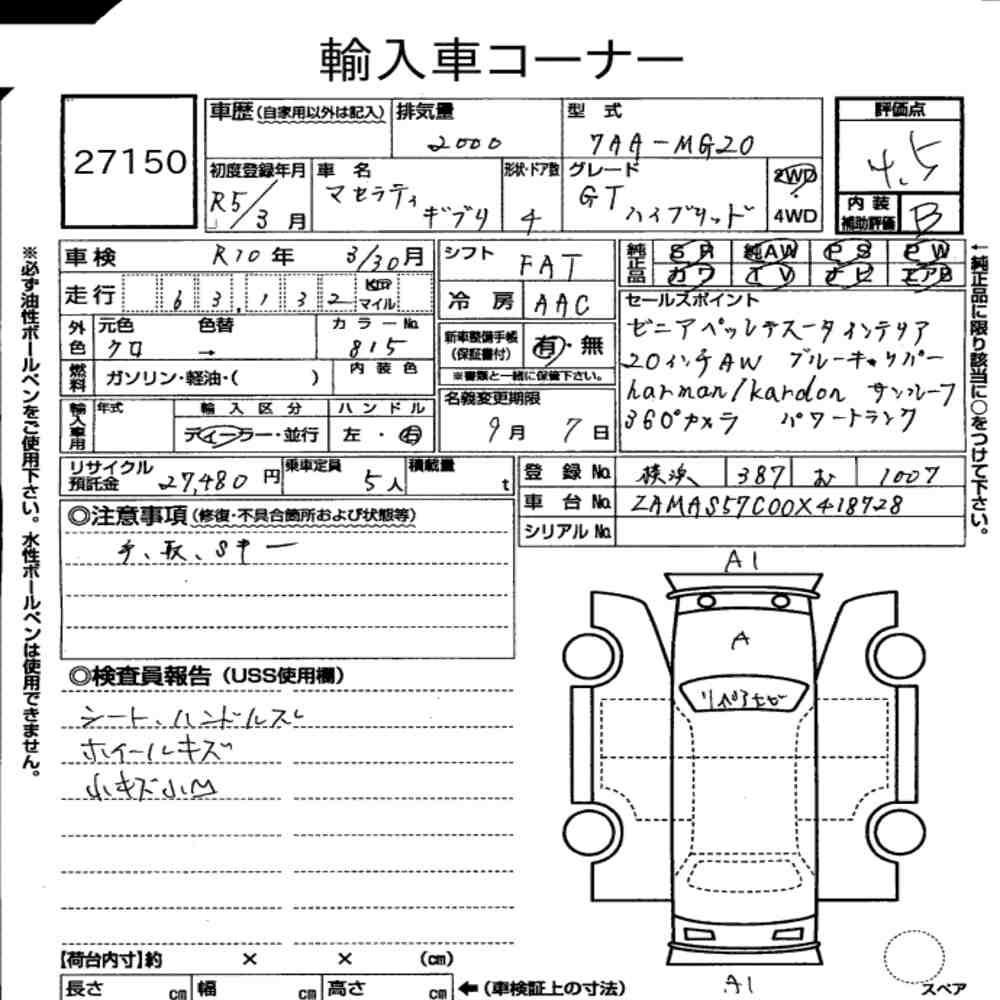 輸入車コーナー
27150
車歴(自家用以外は記入)
排気量
2000
型 式
7AA-MG20
評価点
4.5
初度登録年月
R5/3月
車 名
マセラティ
ギブリ
形状・ドア数
4
グレード
GT
ハイブリッド
2WD
・
4WD
内 装
補助評価
B
車検
R10年 3/30月
シフト
FAT
純正品
SR 純AW PS PW
カワ TV ナビ エアB
走行
63,132
km
マイル
冷 房
AAC
セールスポイント
ゼニアペッレテスータインテリア
20インチAW ブルーキャリパー
harman/kardon サンルーフ
360°カメラ パワートランク
外色
元色 色替
クロ →
カラーNo.
815
新車整備手帳
(保証書付)
有・無
※書類と一緒に保管下さい。
燃料
ガソリン・軽油・( )
内 装 色
名義変更期限
9月 7日
輸入車用
年式
輸 入 区 分
ディーラー・並行
ハ ン ド ル
左 ・ 右
リサイクル
預託金
27,480円
乗車定員
5人
積載量
t
登 録 No.
横浜 387 1007
車 台 No.
ZAMAS57C00X418728
シリアル No.
◎注意事項(修復・不具合箇所および状態等)
手、取、Sキー
◎検査員報告(USS使用欄)
シート、ハンドルスレ
ホイールキズ
小キズ小凹
A1
A
A1
スペア
【荷台内寸】約 × × (cm)
長さ cm 幅 cm 高さ cm ←(車検証上の寸法)
※必ず油性ボールペンをご使用下さい。水性ボールペンは使用できません。
←純正品に限り該当に○をつけて下さい。